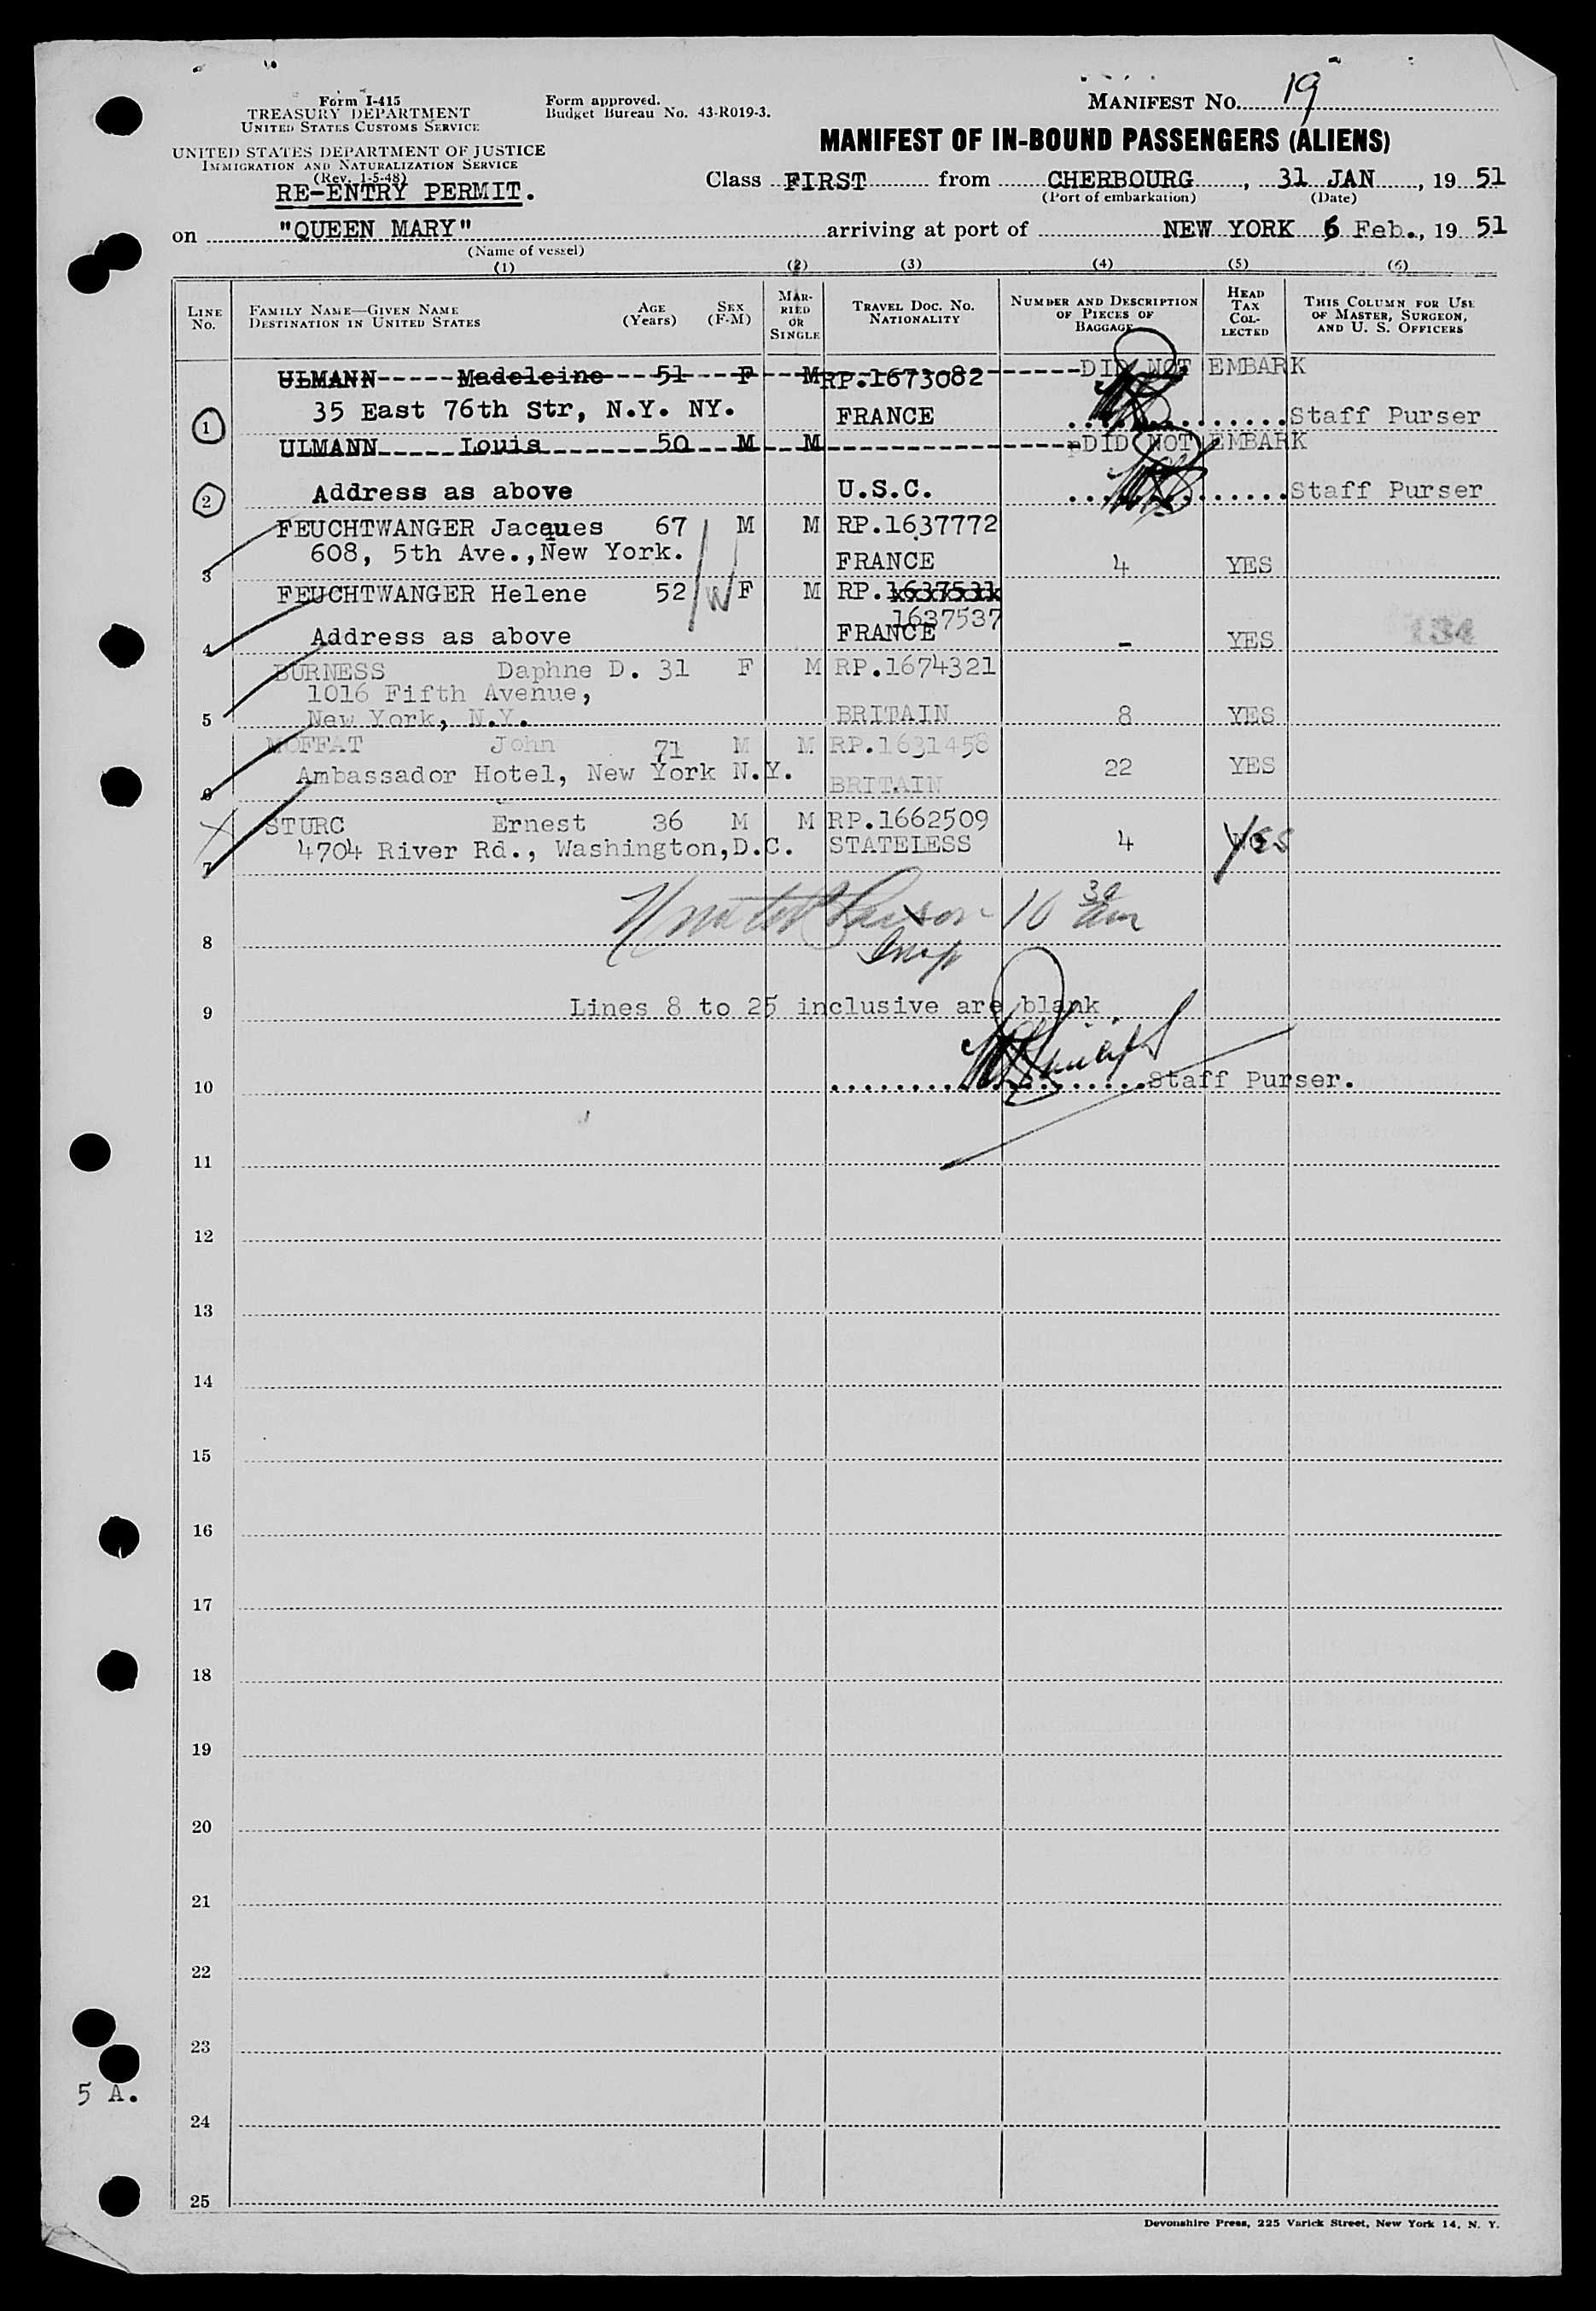 Form I-415
TREASURY DEPARTMENT
UNITED STATES CUSTOMS SERVICE
Form approved.
Budget Bureau No. 43-R019-3.
MANIFEST NO. 19
UNITED STATES DEPARTMENT OF JUSTICE
IMMIGRATION AND NATURALIZATION SERVICE
(Rev. 1-5-48)
RE-ENTRY PERMIT.
MANIFEST OF IN-BOUND PASSENGERS (ALIENS)
Class FIRST from CHERBOURG, 31 JAN, 19 51
(Port of embarkation) (Date)
on "QUEEN MARY" arriving at port of NEW YORK 6 Feb., 19 51
(Name of vessel)
(1) (2) (3) (4) (5) (6)
LINE NO.
FAMILY NAME—GIVEN NAME
DESTINATION IN UNITED STATES
AGE (Years)
SEX (F-M)
MARRIED OR SINGLE
TRAVEL DOC. NO.
NATIONALITY
NUMBER AND DESCRIPTION OF PIECES OF BAGGAGE
HEAD TAX COLLECTED
THIS COLUMN FOR USE OF MASTER, SURGEON, AND U. S. OFFICERS
ULMANN-----Madeleine 51 F M RP.1673082 DID NOT EMBARK
1 35 East 76th Str, N.Y. NY. FRANCE Staff Purser
ULMANN-----Louis 50 M M DID NOT EMBARK
2 Address as above U.S.C. Staff Purser
FEUCHTWANGER Jacques 67 M M RP.1637772
3 608, 5th Ave.,New York. FRANCE 4 YES
FEUCHTWANGER Helene 52 W F M RP.
1637537
4 Address as above FRANCE - YES
134
BURNESS Daphne D. 31 F M RP.1674321
1016 Fifth Avenue,
5 New York, N.Y. BRITAIN 8 YES
MOFFAT John 71 M M RP.1631458
6 Ambassador Hotel, New York N.Y. BRITAIN 22 YES
X STURC Ernest 36 M M RP.1662509
7 4704 River Rd., Washington,D.C. STATELESS 4 Yes
10 30 am
8
Insp
Lines 8 to 25 inclusive are blank
9
10 Staff Purser.
11
12
13
14
15
16
17
18
19
20
21
22
23
5 A.
24
25
Devonshire Press, 225 Varick Street, New York 14, N. Y.